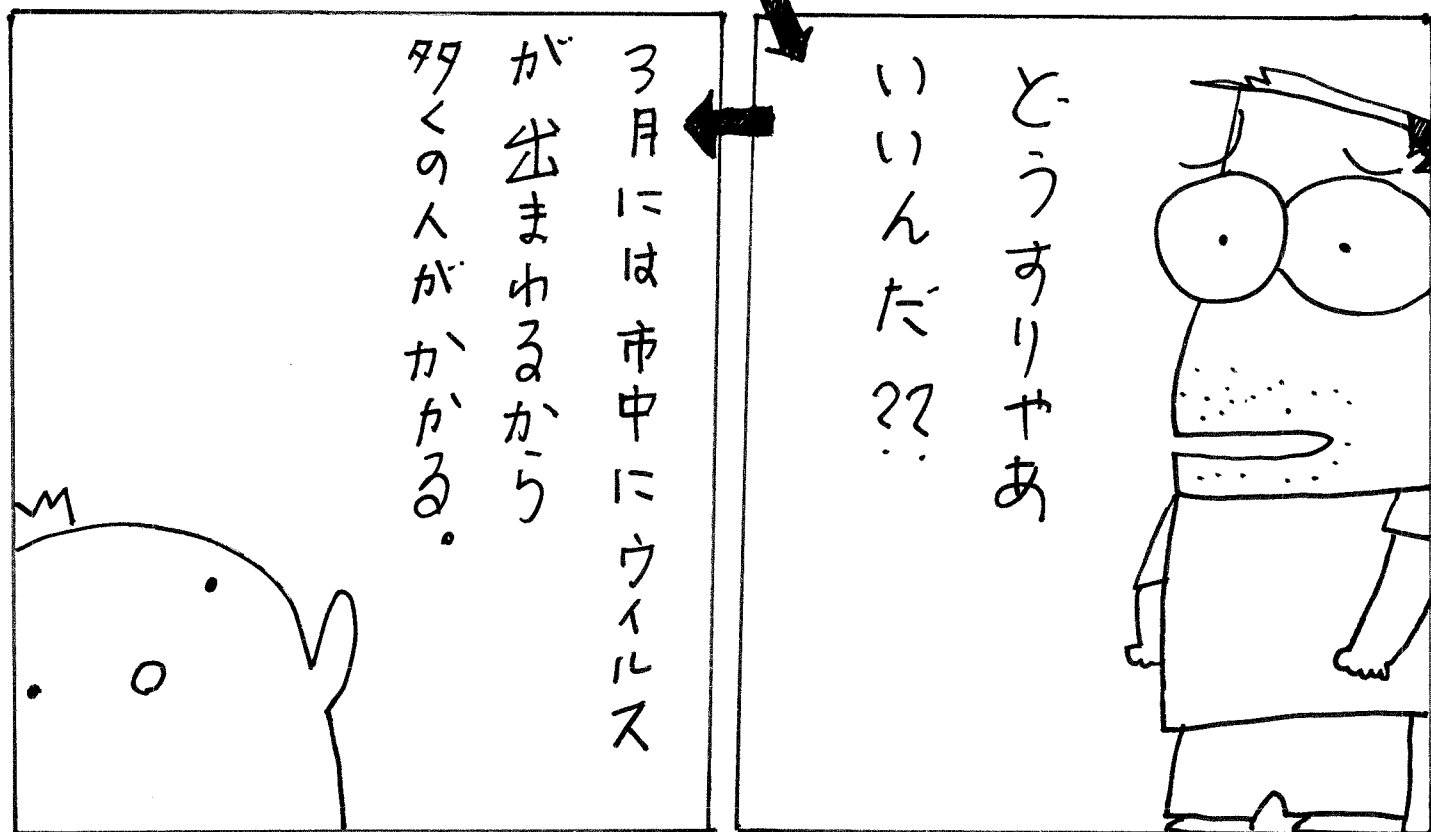 どうすりゃあ
いいんだ??
3月には市中にウィルス
が出まわるから
多くの人がかかる。